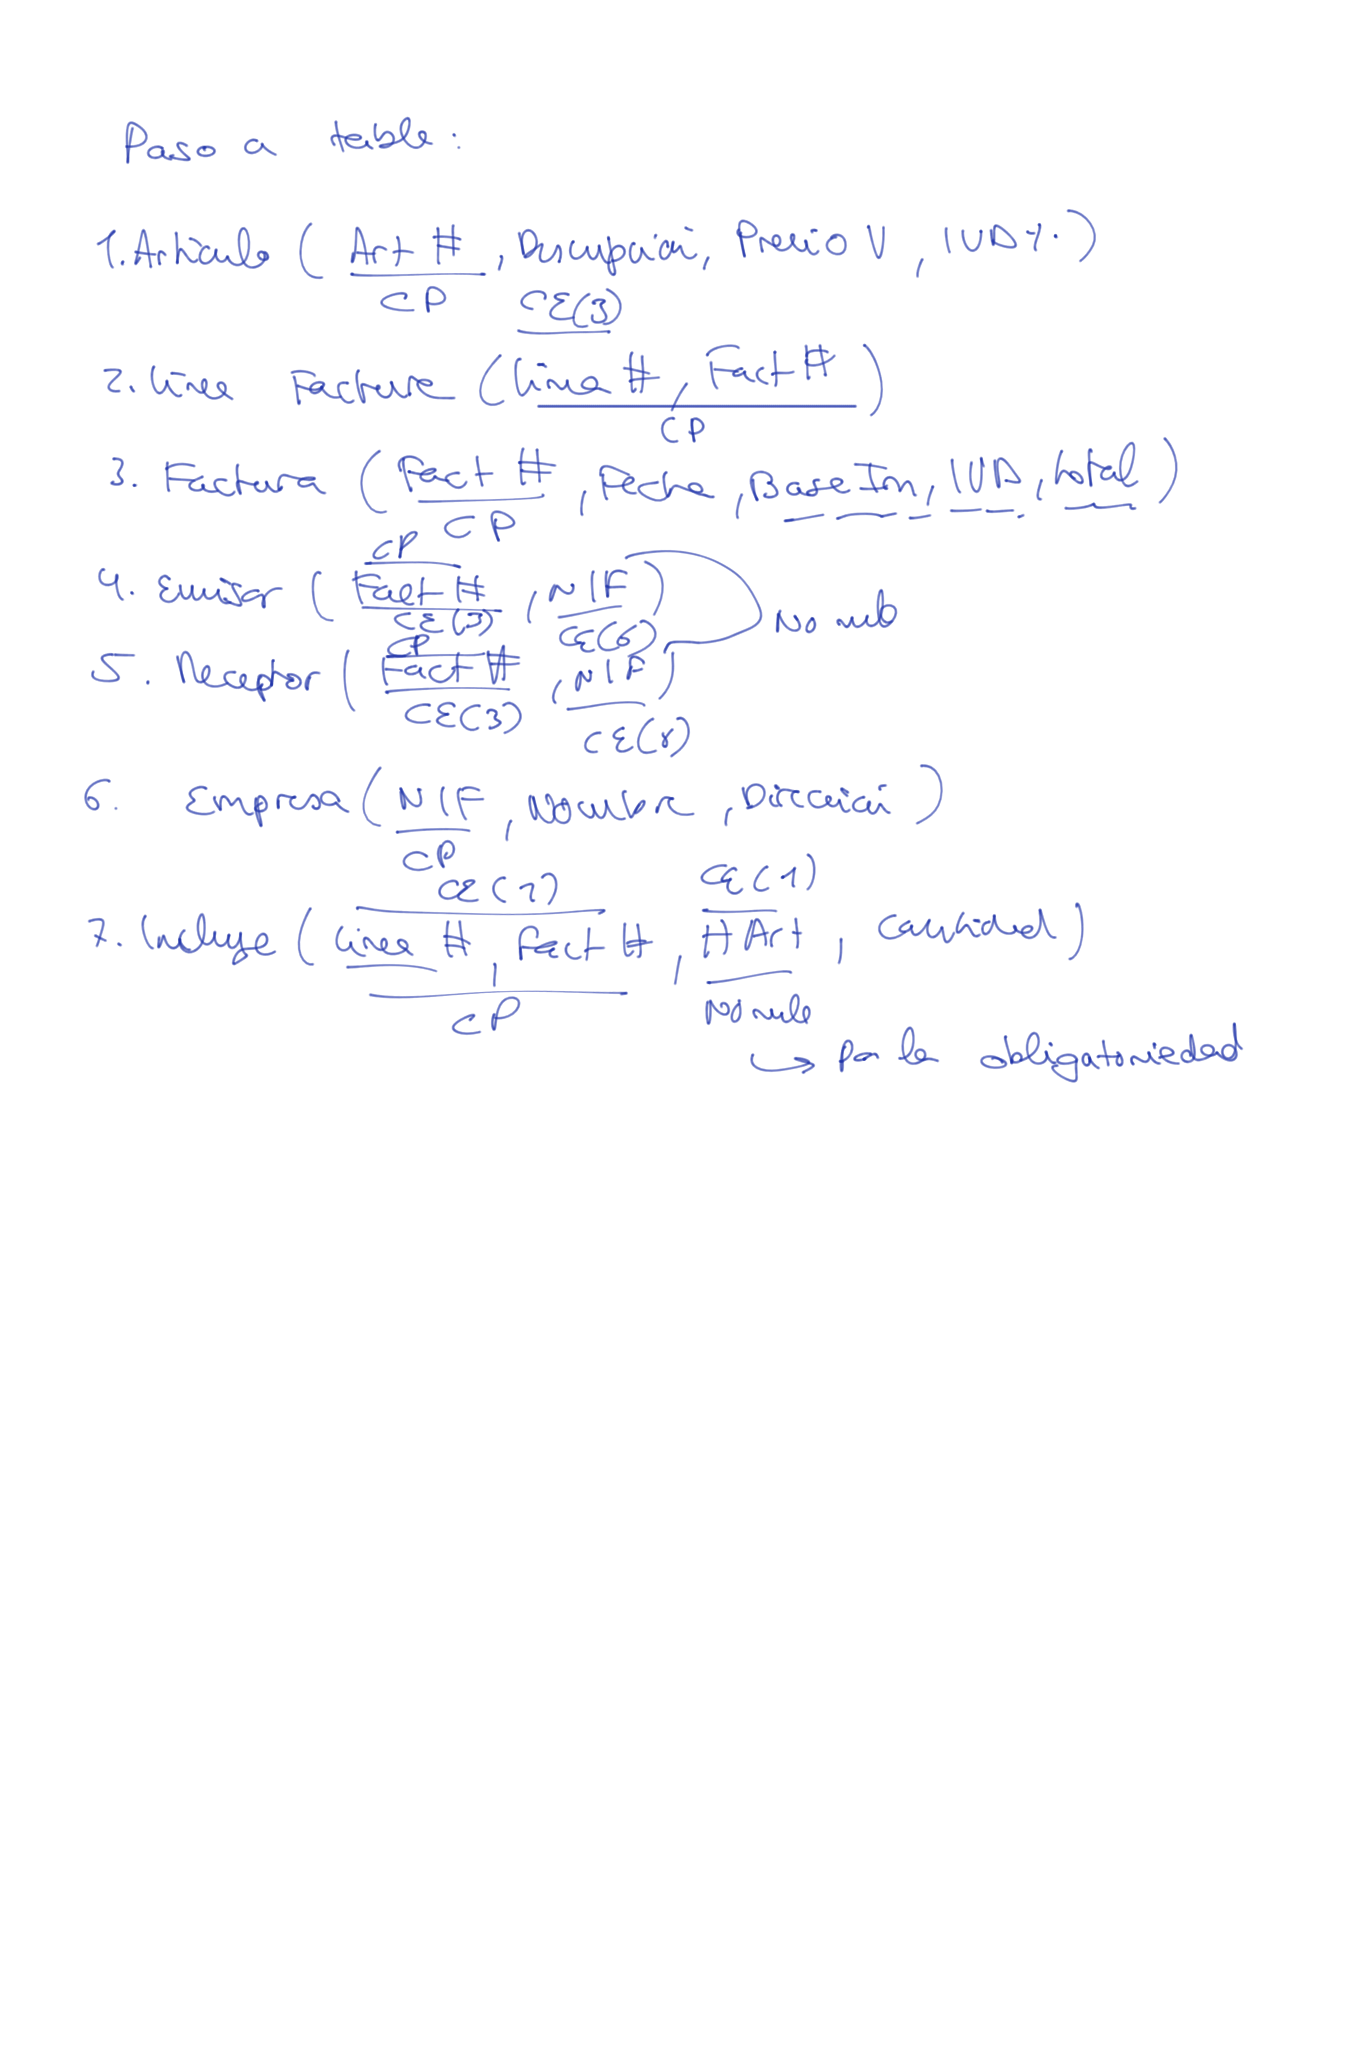 Paso a tabla:
1. Artículo ( Art #, Descripción, Precio V, IVA%)
CP CE(3)
2. línea Factura (línea #, Fact #)
CP
3. Factura (Fact #, Fecha, Base Im, IVA, total)
CP
CP
4. Emisor (Fact #, NIF)
CE(3) CE(6) No nulo
CP
5. Receptor (Fact #, NIF)
CE(3)
6. Empresa (NIF, Nombre, Dirección)
CP
CE(2) CE(1)
7. Incluye (línea #, Fact #, # Art, cantidad)
CP No nulo
↳ Por la obligatoriedad